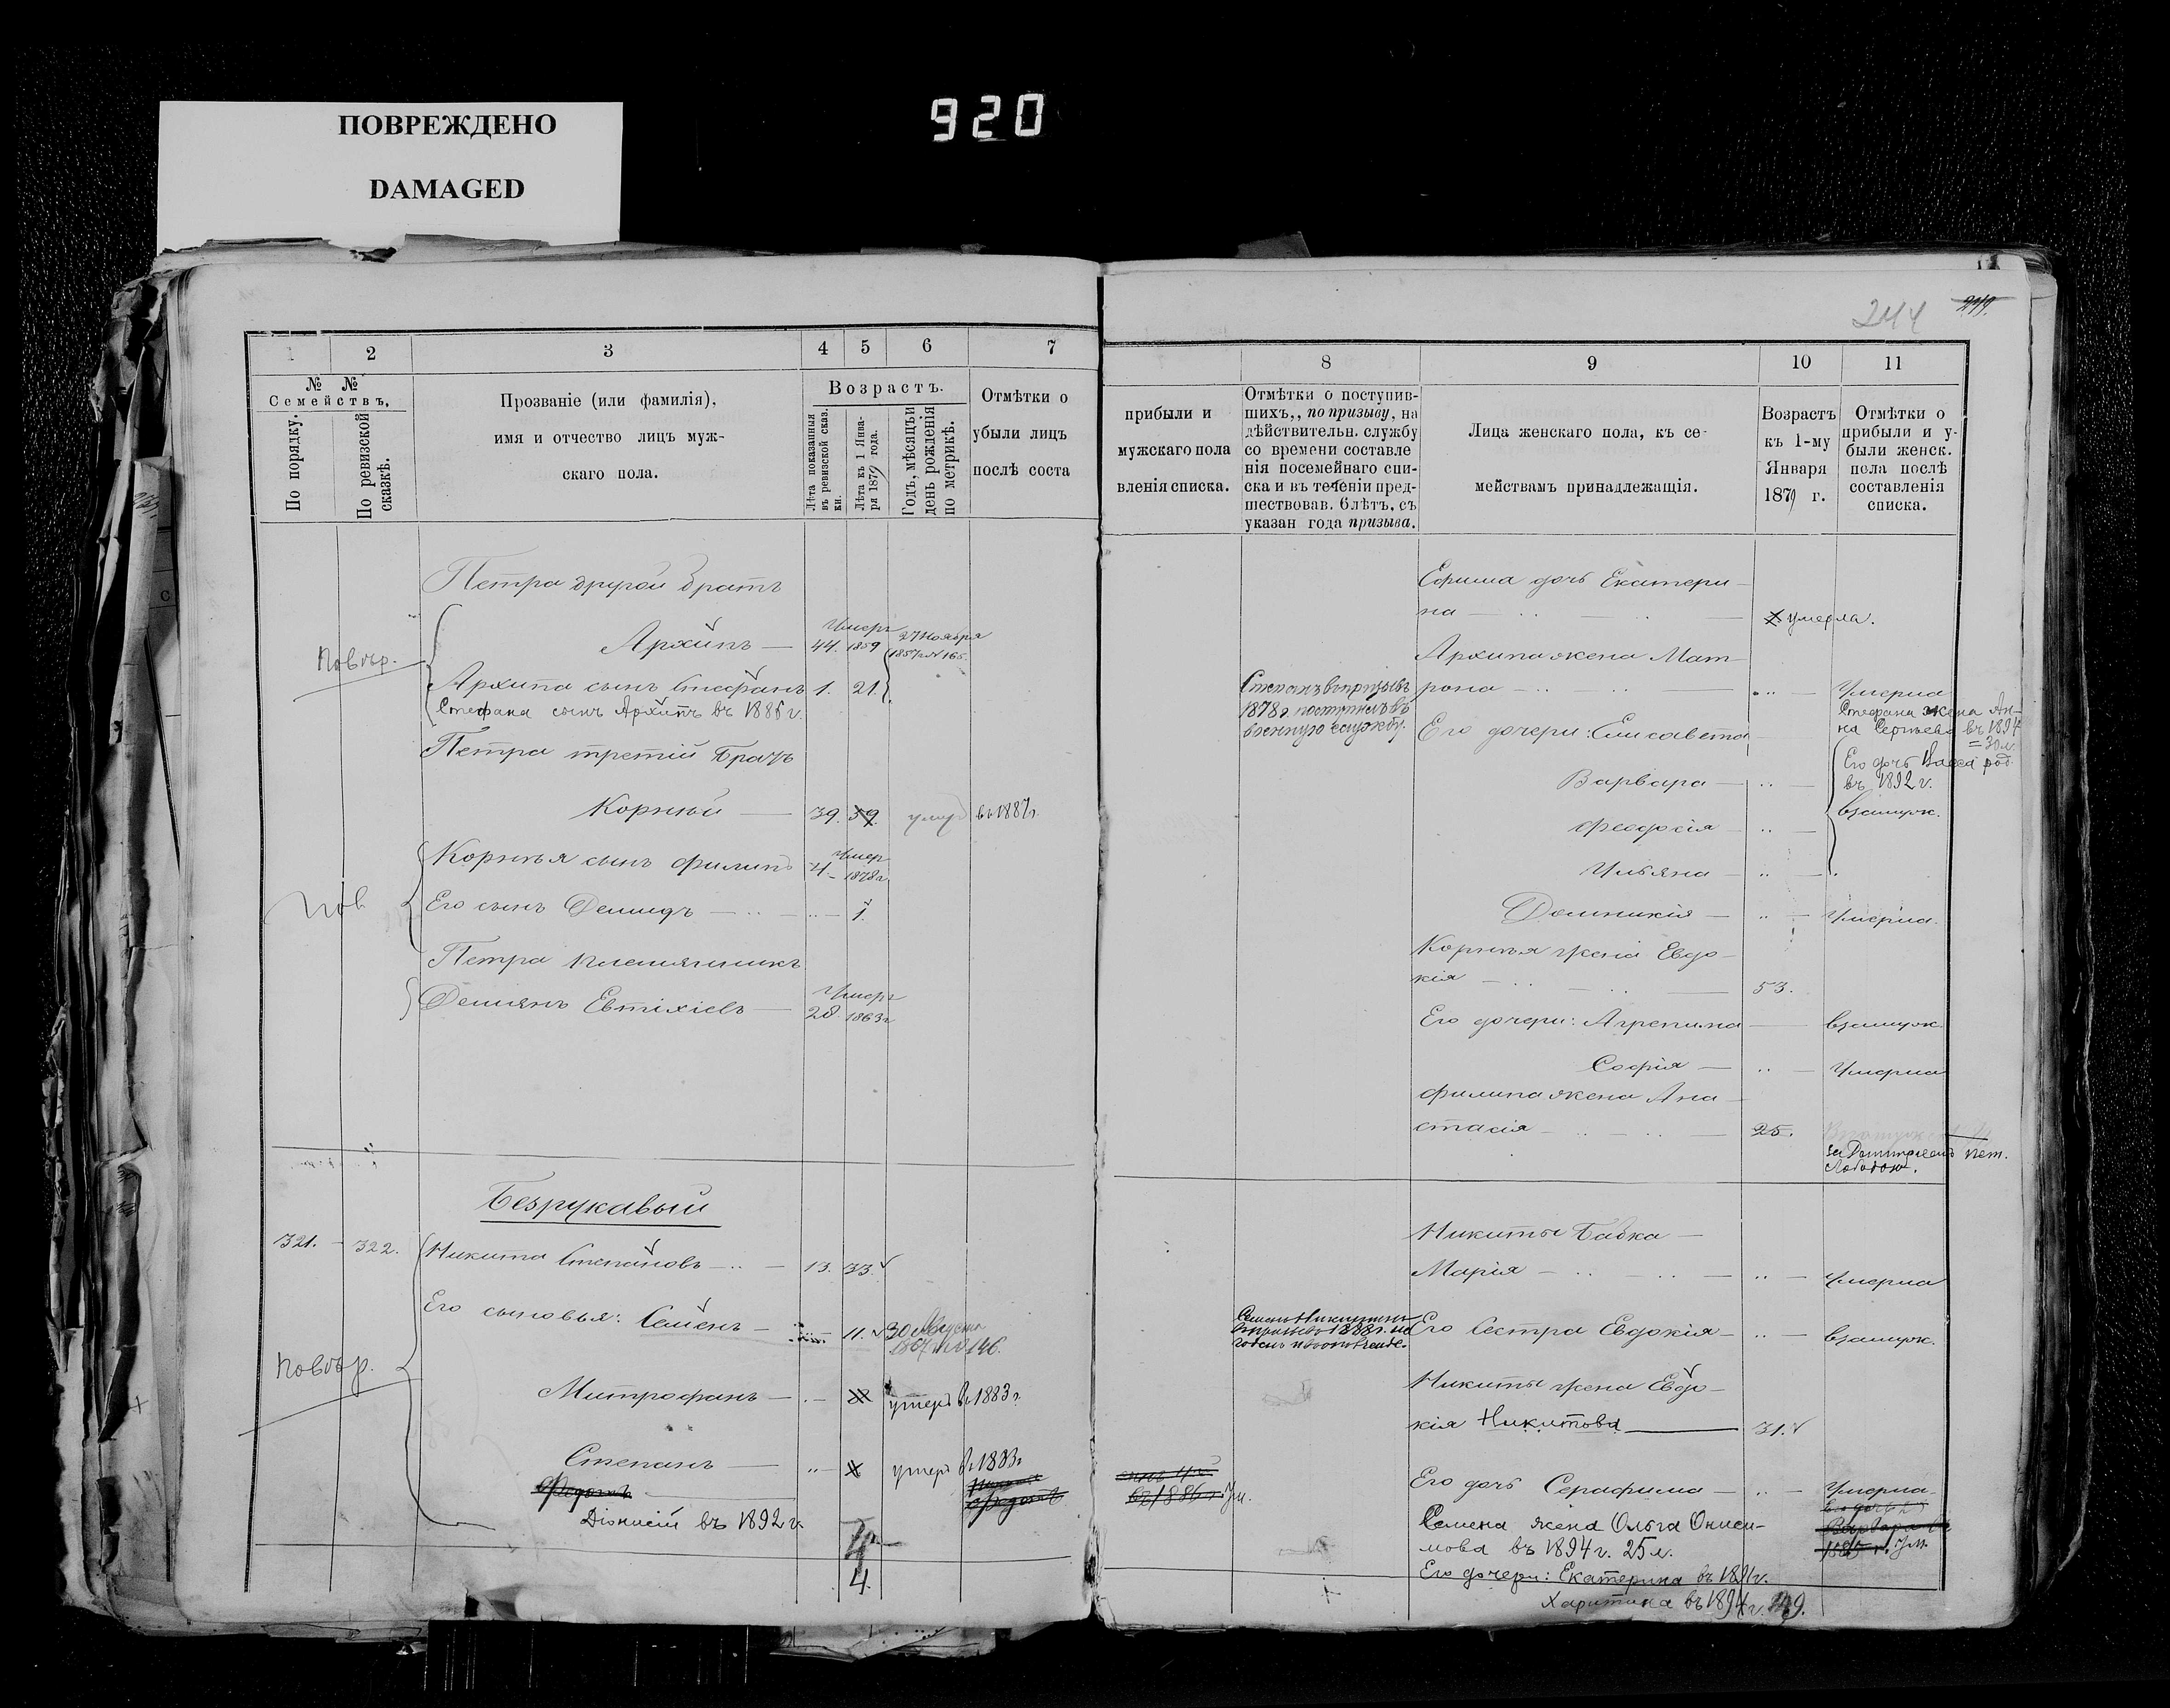 ПОВРЕЖДЕНО
DAMAGED
920
244
249.
1
2
3
4
5
6
7
№ №
Семействъ.
По порядку.
По ревизской
сказкѣ.
Прозваніе (или фамилія),
имя и отчество лицъ муж-
скаго пола.
Возрастъ.
Лѣта показанныя
въ ревизской сказ.
ки.
Лѣта къ 1 Янва-
ря 1879 года.
Годъ, мѣсяцъ и
день рожденія
по метрикѣ.
Отмѣтки о
убыли лицъ
послѣ соста
Петра другой братъ
Архипъ — 44. Умеръ 1859
27 Ноября
1857 г. № 165.
Повѣр.
Архипа сынъ Стефанъ 1. 21.
Стефана сынъ Архипъ въ 1886 г.
Петра третій братъ
Корнѣй — 39. 59. умеръ въ 1887г.
Корнѣя сынъ Филипъ 4. Умер. 1878г.
Пов.
Его сынъ Демидъ — 1.
Петра племянникъ
Демянъ Евтіхіевъ — 28. Умеръ 1863г.
Безрукавый
321. - 322. Никита Степановъ — 13. 33.
Его сыновья: Семенъ — 11. 30 Августа
1867 г. № 146.
Повѣр.
Митрофанъ — умеръ в 1883 г.
Степанъ — умеръ в 1883г
Федотъ
Діонисій въ 1892 г.
4.
4.
8
9
10
11
прибыли и
мужскаго пола
вленія списка.
Отмѣтки о поступив-
шихъ,, по призыву, на
дѣйствительн. службу
со времени составле
нія посемейнаго спи-
ска и въ теченіи пред-
шествовав. 6 лѣтъ, съ
указан года призыва.
Лица женскаго пола, къ се-
мействамъ принадлежащія.
Возрастъ
къ 1-му
Января
1879 г.
Отмѣтки о
прибыли и у-
были женск.
пола послѣ
составленія
списка.
Ефима дочь Екатери-
на — умерла.
Архипа жена Мат-
рона — Умерла
Степанъ въ призывъ
1878 г. поступилъ въ
военную службу.
Стефана жена Ан-
на Сергѣева въ 1894
= 30 л.
Его дочери: Елисавета
Его дочь Васса род.
въ 1892 г.
Варвара —
взамуж.
Феодосія —
Ульяна —
Домникія — Умерла.
Корнѣя жена Евдо-
кія — 53.
Его дочери: Агрепина — взамуж.
Софія — Умерла
Филипа жена Ана-
стасія — 25.
за Дмитріемъ Пет.
Лободою.
Никиты бабка —
Марія — Умерла
Семенъ Никитинъ
Его Сестра Евдокія — взамуж.
Никиты жена Евдо-
кія Никитова — 31.
въ 1886 г. Ум.
Его дочь Серафима — Умерла.
Его дочь
Варвара въ
1885 г. Ум.
Семена жена Ольга Ониси-
мова въ 1894 г. 25 л.
Его дочери: Екатерина въ 1891 г.
Харитина въ 1894 г. 249.